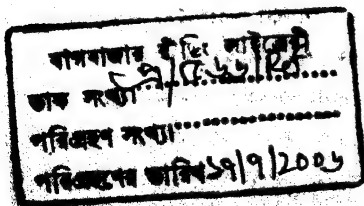 বাগবাজার রীডিং লাইব্রেরী
ডাক সংখ্যা
পরিগ্রহণ সংখ্যা
পরিগ্রহণের তারিখ ১৭/৭/2006